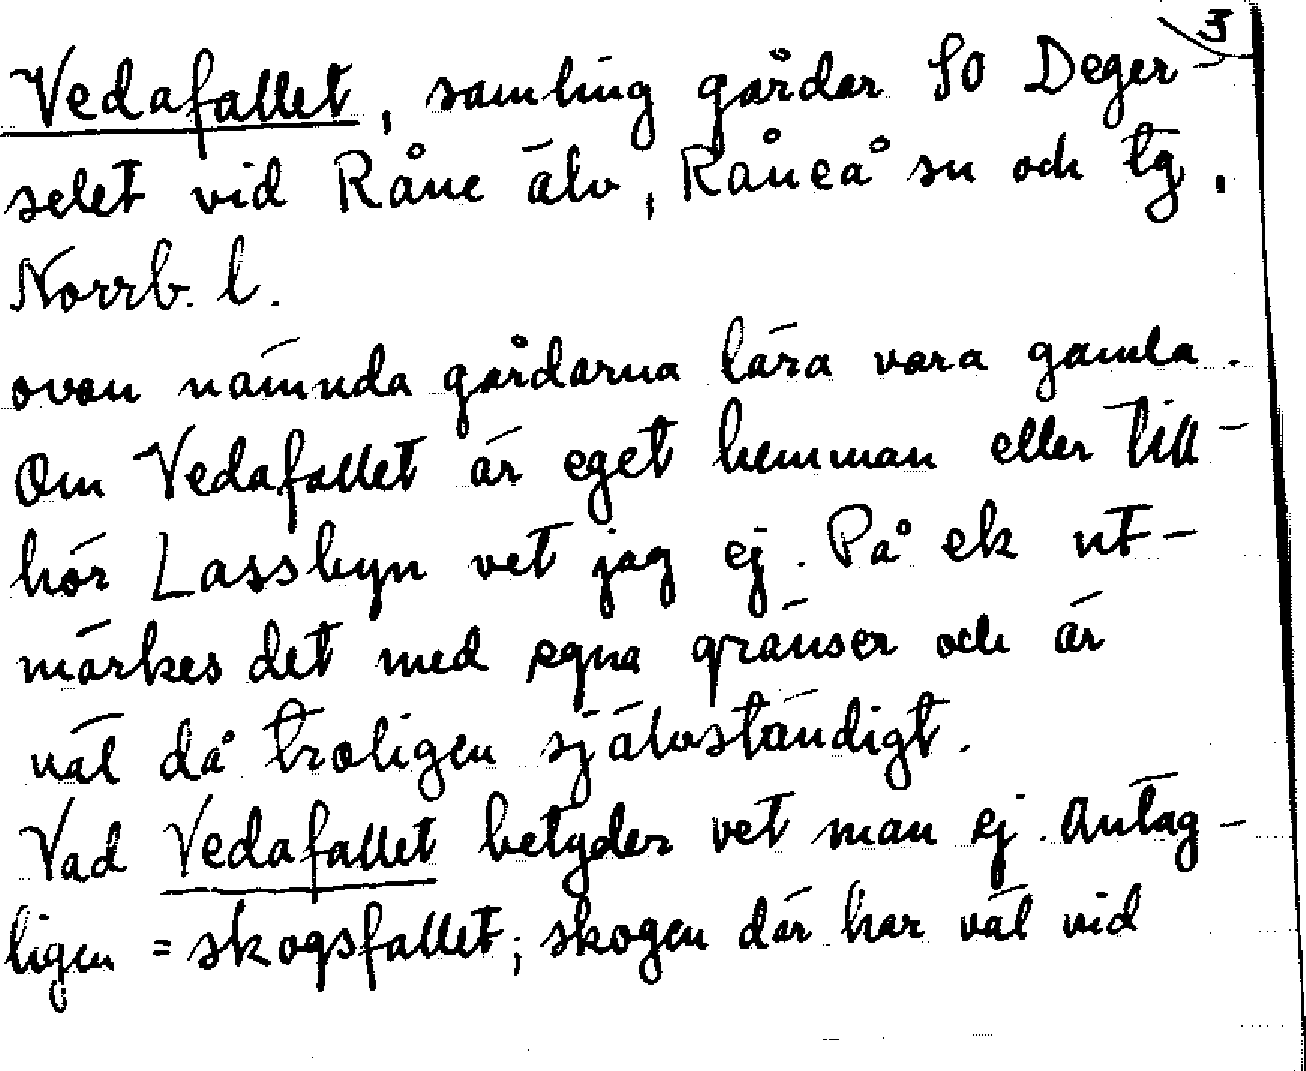 3
Vedafallet, samling gårdar SO Deger-
selet vid Råne älv, Råneå sn och tg,
Norrb. l.
ovan nämnda gårdarna lära vara gamla.
Om Vedafallet är eget hemman eller till-
hör Lassbyn vet jag ej. På ek ut-
märkes det med egna gränser och är
väl då troligen självständigt.
Vad Vedafallet betyder vet man ej. Antag-
ligen = skogsfallet; skogen där har väl vid